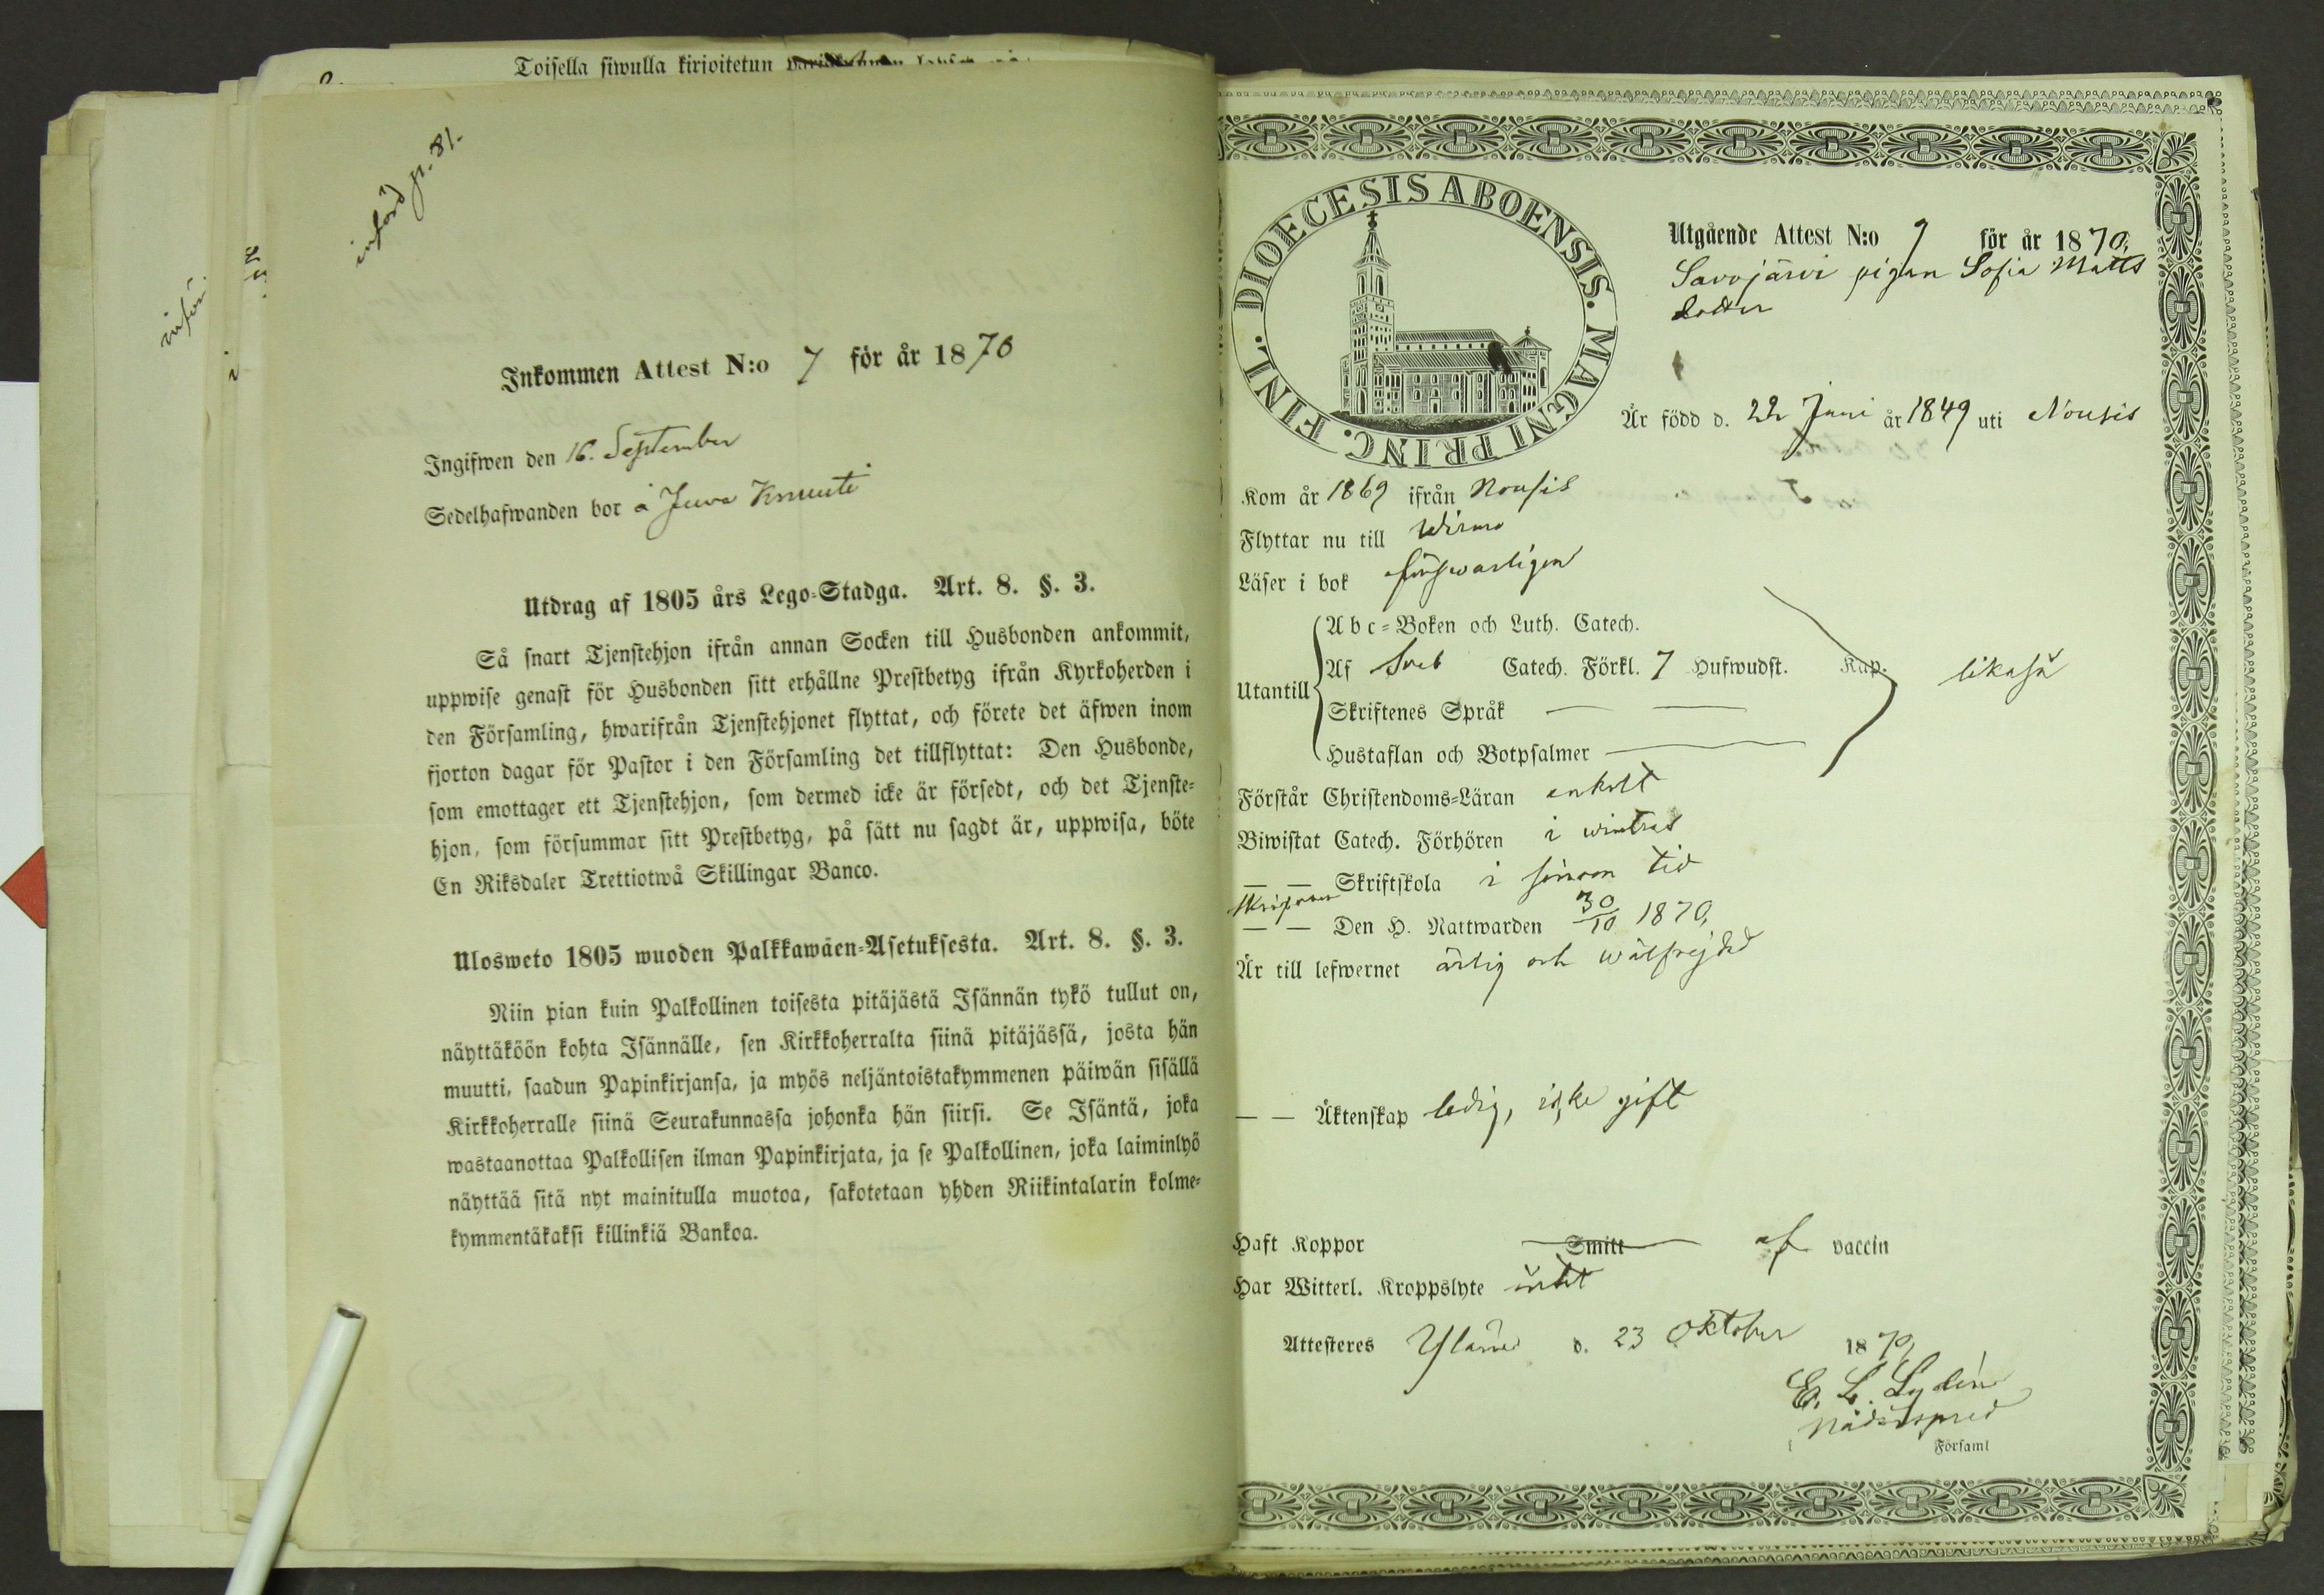 Toisella siwulla kirjoitetun
införd p. 81.
Inkommen Attest N:o 7 för år 1870
Ingifwen den 16. September
Sedelhafwanden bor å Juva Knuuti
Utdrag af 1805 års Lego-Stadga. Art. 8. §. 3.
Så snart Tjenstehjon ifrån annan Socken till Husbonden ankommit,
uppwise genast för Husbonden sitt erhållne Prestbetyg ifrån Kyrkoherden i
den Församling, hwarifrån Tjenstehjonet flyttat, och förete det äfwen inom
fjorton dagar för Pastor i den Församling det tillflyttat: Den Husbonde,
som emottager ett Tjenstehjon, som dermed icke är försedt, och det Tjenste-
hjon, som försummar sitt Prestbetyg, på sätt nu sagdt är, uppwisa, böte
En Riksdaler Trettiotwå Skillingar Banco.
Ulosweto 1805 wuoden Palkkawäen-Asetuksesta. Art. 8. §. 3.
Niin pian kuin Palkollinen toisesta pitäjästä Isännän tykö tullut on,
näyttäköön kohta Isännälle, sen Kirkkoherralta siinä pitäjässä, josta hän
muutti, saadun Papinkirjansa, ja myös neljäntoistakymmenen päiwän sisällä
Kirkkoherralle siinä Seurakunnassa johonka hän siirsi. Se Isäntä, joka
wastaanottaa Palkollisen ilman Papinkirjata, ja se Palkollinen, joka laiminlyö
näyttää sitä nyt mainitulla muotoa, sakotetaan yhden Riikintalarin kolme-
kymmentäkaksi killinkiä Bankoa.
DIOECESIS ABOENSIS. MAGNI PRINC. FINL.
Utgående Attest N:o 9 för år 1870,
Savojärvi pigan Sofia Matts
dotter
Är född d. 22 Juni år 1849 uti Nousis
Kom år 1869 ifrån Nousis
Flyttar nu till Wirmo
Läser i bok försvarligen
Abc-Boken och Luth. Catech.
Utantill Af Sveb Catech. Förkl. 7 Hufwudst. Kap. likaså
Skriftenes Språk
Hustaflan och Botpsalmer
Förstår Christendoms-Läran enkelt
Biwistat Catech. Förhören i wintras
— — Skriftskola i sinom tid
— — Den H. Nattwarden 30/10 1870,
Är till lefwernet ärlig och wälfrejdad
— — Äktenskap ledig, icke gift
Haft Koppor Smitt af vaccin
Har Witterl. Kroppslyte intet
Attesteres Yläne d. 23 Oktober 1870,
E. L. Lydén
Nådårspred
Församl